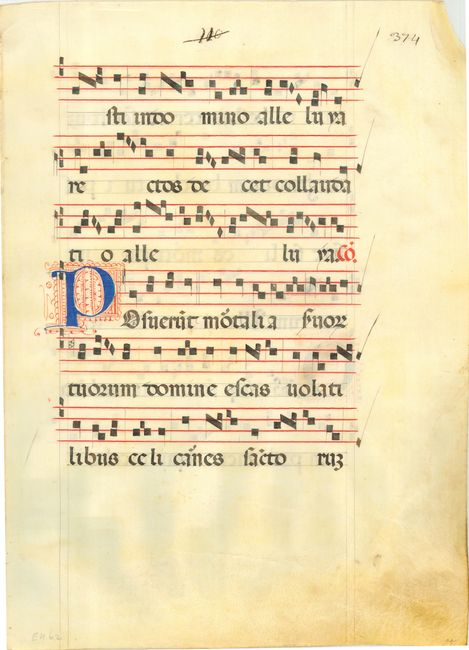 110 374
sti in do mino alle lu ya
re ctos de cet collauda
ti o alle lu ya. Cō.
POsuerūt mōtali a suor
tuorum domine escas uolati
libus celi carnes scto ruz
E462